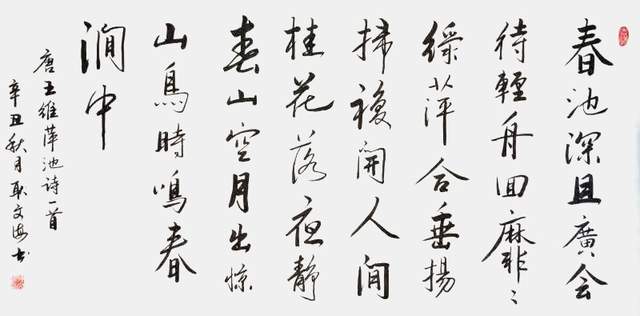 春池深且廣会
待輕舟回靡〻
綠萍合垂揚
掃複開人間
桂花落夜靜
春山空月出惊
山鳥時鳴春
澗中
唐王維萍池诗一首
辛丑秋月耿文海书